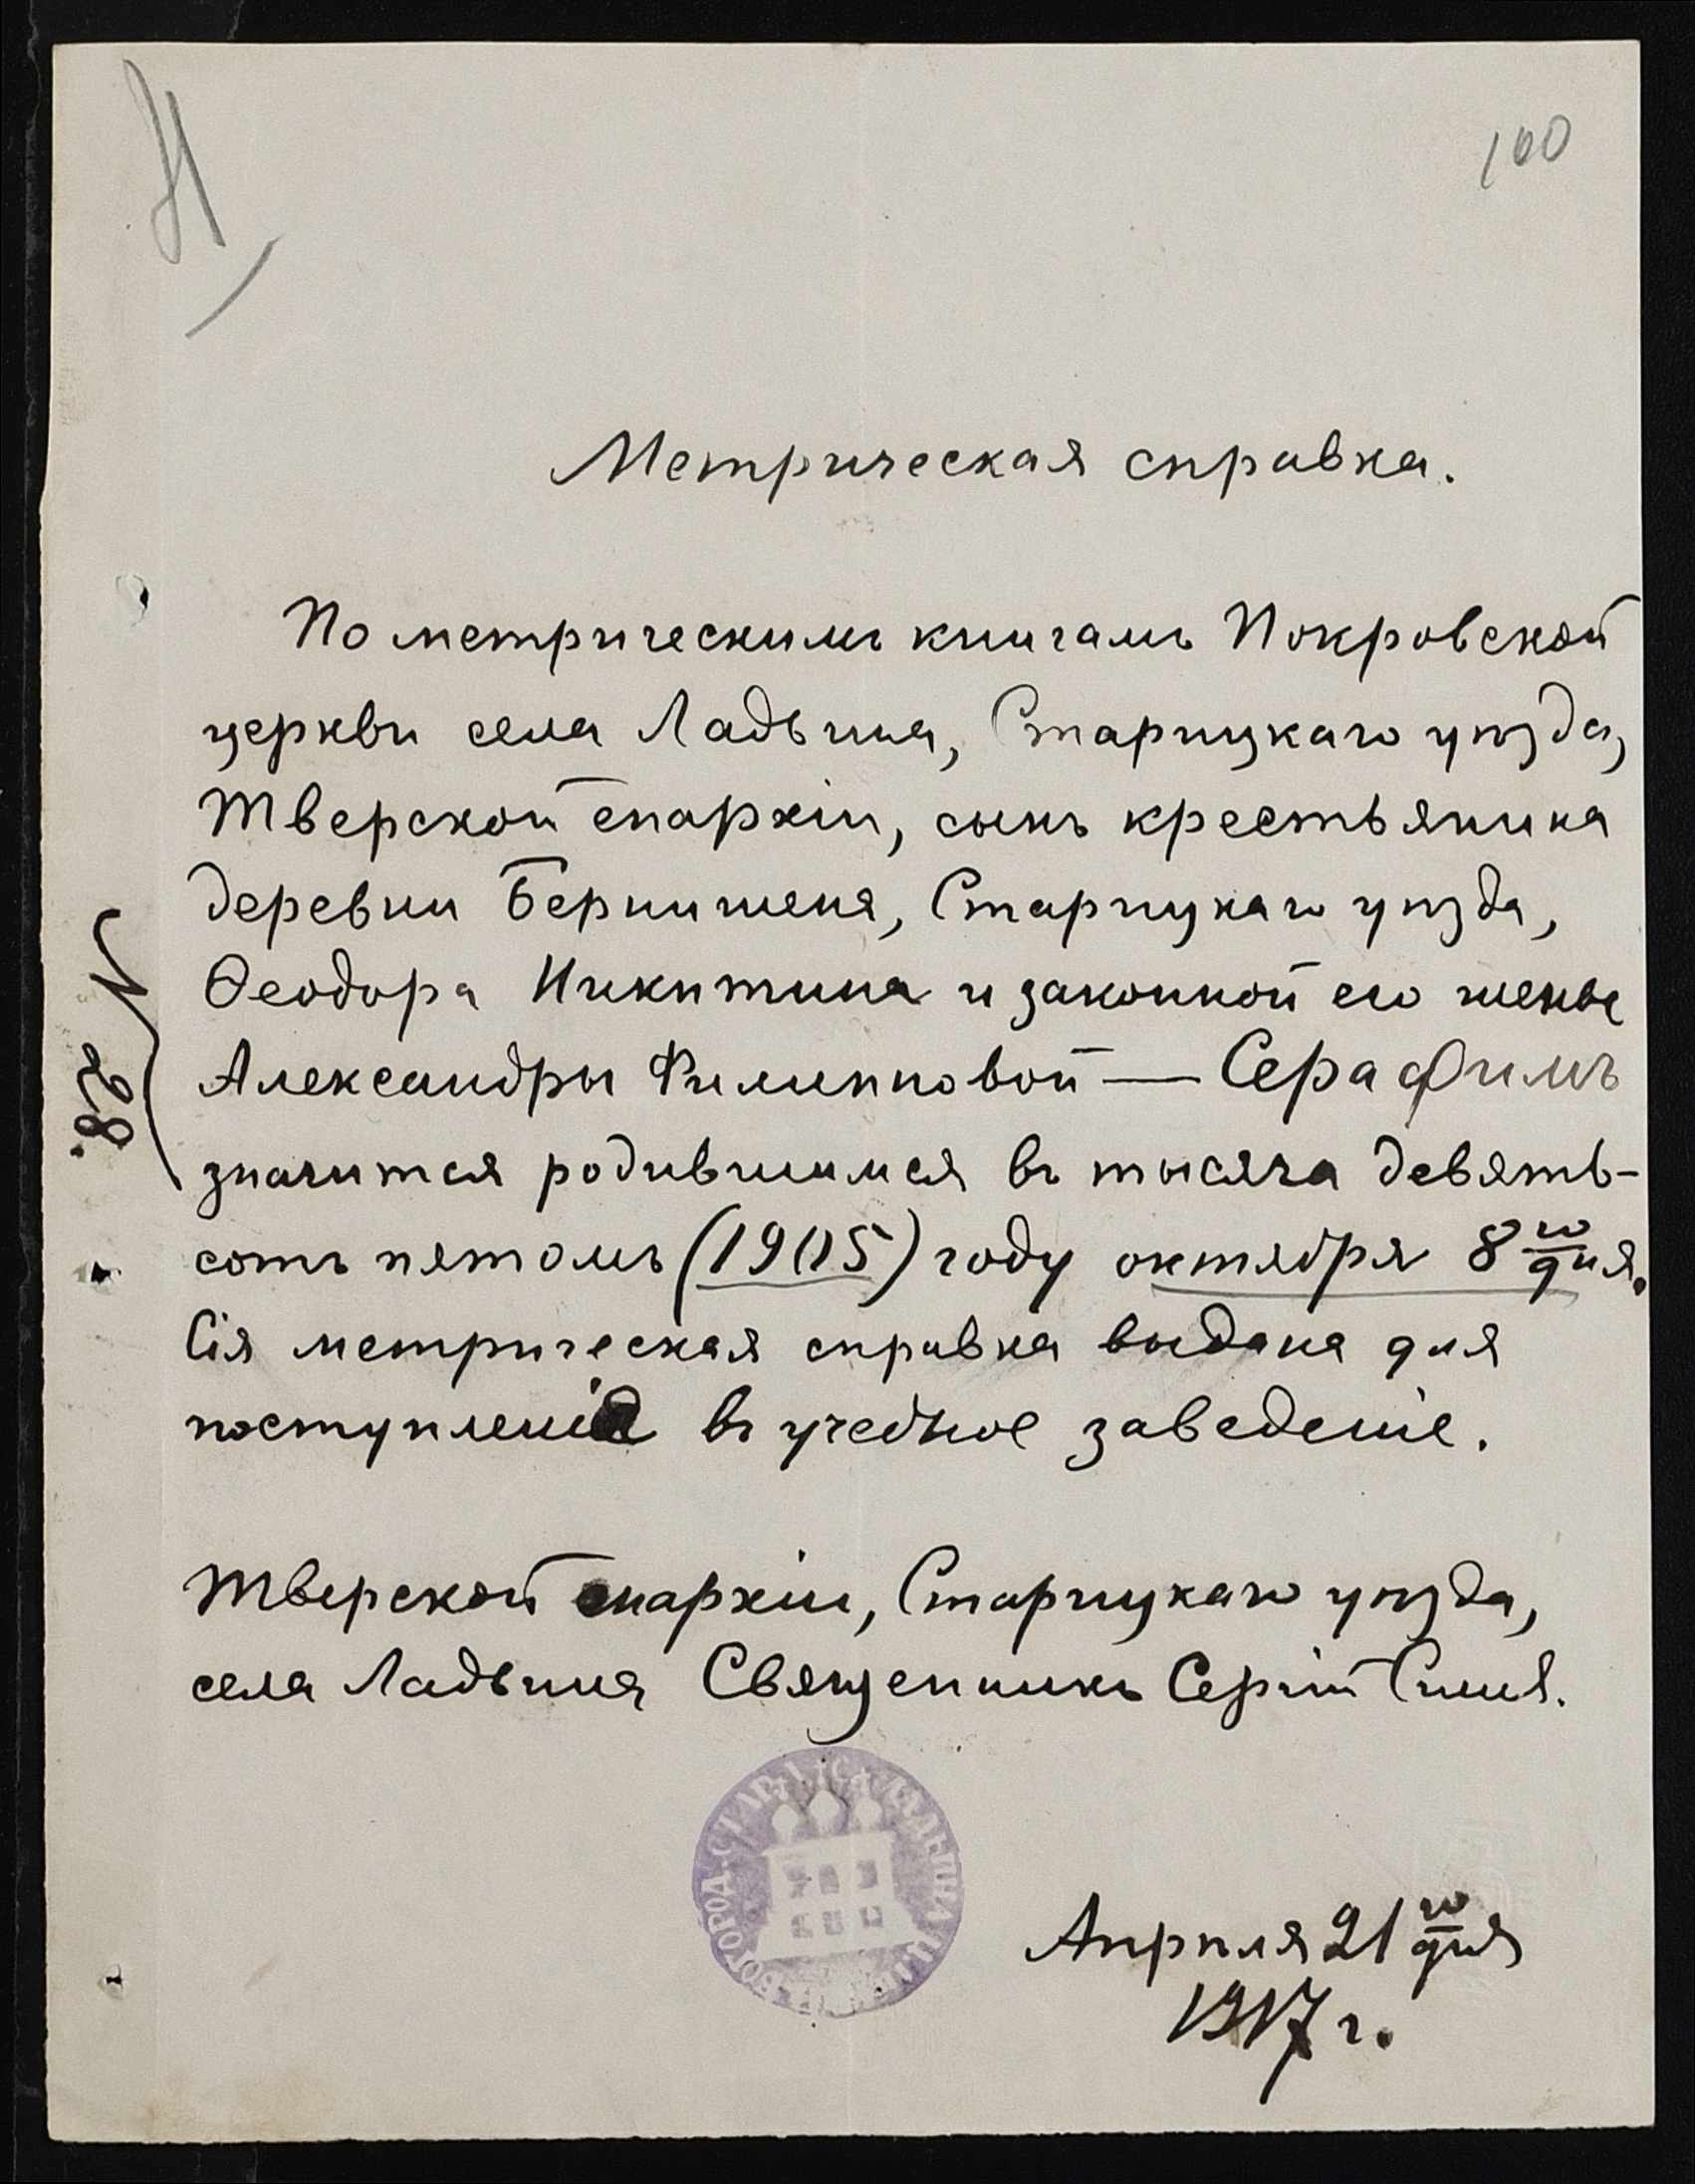 100
Метрическая справка.
По метрическимъ книгамъ Покровской
церкви села Ладьина, Старицкаго уѣзда,
Тверской епархіи, сынъ крестьянина
деревни Бернишена, Старицкаго уѣзда,
Ѳеодора Никитина и законной его жены
Александры Филипповой — Серафимъ
значится родившимся въ тысяча девять-
сотъ пятомъ (1905) году октября 8го дня.
Сія метрическая справка выдана для
поступленія въ учебное заведеніе.
Тверской епархіи, Старицкаго уѣзда,
села Ладьина Священникъ Сергій
Апрѣля 21го дня
1917 г.
N 28.